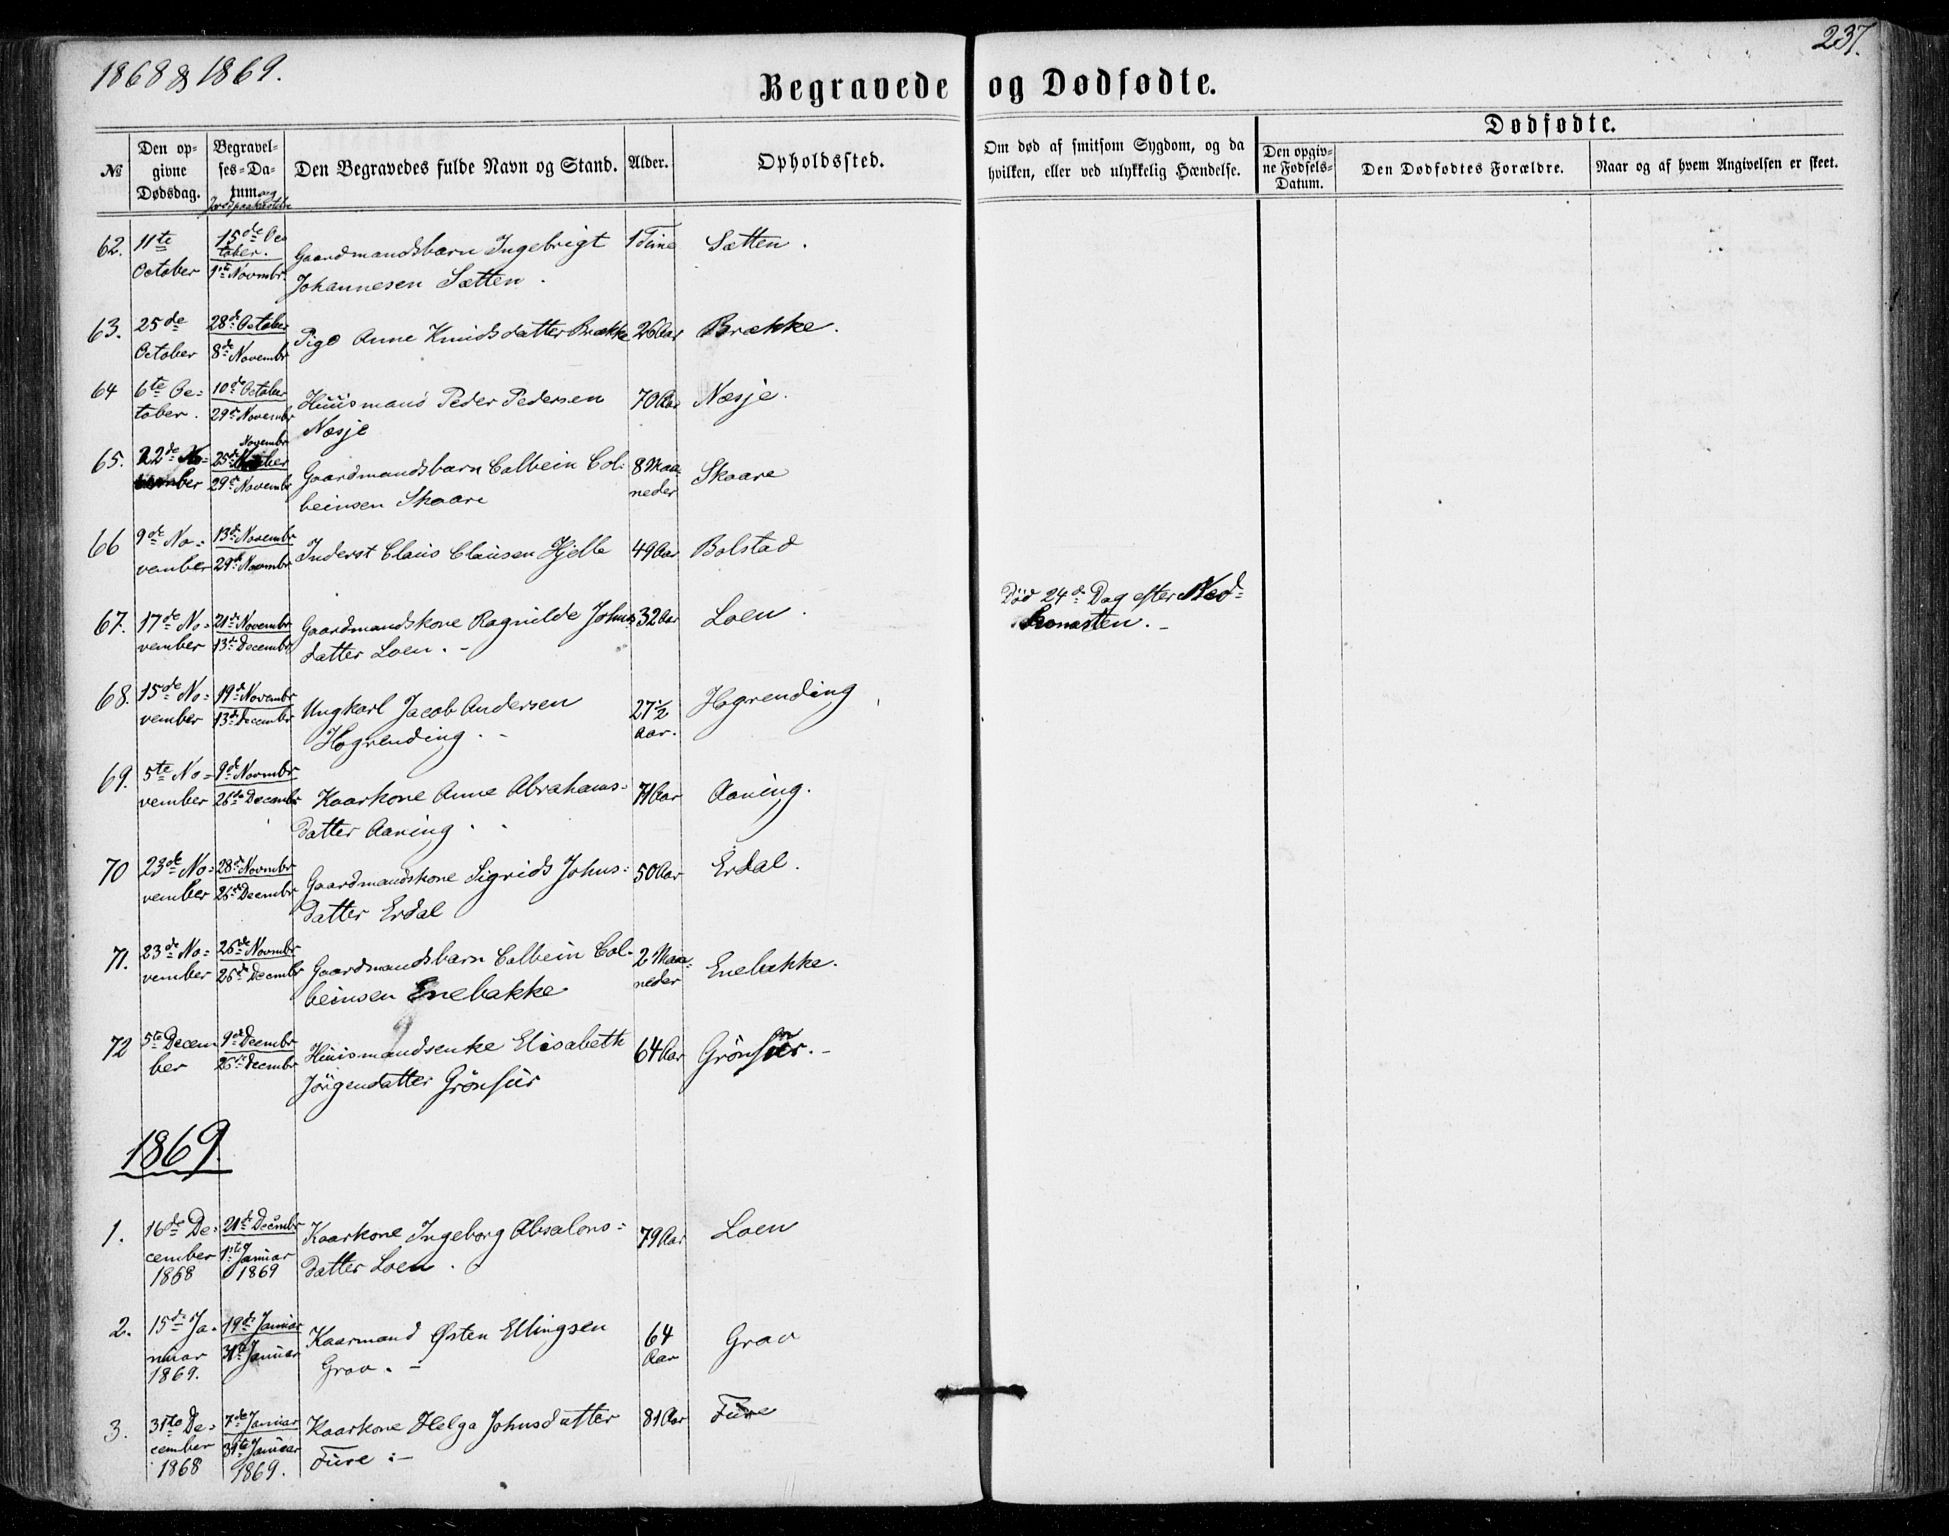 1868 & 1869.
237.
Begravede og Dødfødte.
№
Den op-
givne
Dødsdag.
Begravel-
ses-Da-
tum og
Jordpaakastelse
Den Begravedes fulde Navn og Stand.
Alder.
Opholdssted.
Om død af smitsom Sygdom, og da
hvilken, eller ved ulykkelig Hændelse.
Dødfødte.
Den opgiv-
ne Fødsels-
Datum.
Den Dødfødtes Forældre.
Naar og af hvem Angivelsen er skeet.
62. 11te October 15de October. 1ste Novmbr. Gaardmandsbarn Ingebrigt 1 Time Sætten.
Johannesen Sætten.
63. 25de October 28de October 8de Novembr Pige Anne Knudsdatter Brække 26 Aar Brække.
64 6te October. 10de October 29de Novembr Huusmand Peder Pedersen 70 Aar Næsje.
Næsje
65. 22de November 25de Novembr 29de Novembr Gaardmandsbarn Colbein Col- 8 Maaneder Skaare
beinsen Skaare
66 9de November 13de Novembr 29de Novembr Inderst Claus Clausen Hjelle 49 Aar Bolstad
67. 17de November 21de Novembr 13de Decembr Gaardmandskone Ragnilde Johns 32 Aar Loen.
datter Loen. -
Død 24de Dag efter Ned-
komsten. -
68. 15de November 19de Novembr 13de Decembr Ungkarl Jacob Andersen 27 1/2 Aar. Hogrending
Hogrending. -
69. 5te November 9de Novmbr 26de Decembr Kaarkone Anne Abrahams- 71 Aar Aaning.
datter Aaning.
70 23de November 28de Novmbr 26de Decmbr Gaardmandskone Sigrids Johns- 50 Aar Erdal.
datter Erdal
71. 23de November 26de Novmbr 26de Decmbr Gaardmandsbarn Colbein Col- 2 Maaneder Enebakke.
beinsen Enebakke
72 5te December 9de Decmbr 26de Decmbr Huusmandsenke Elisabeth 64 Aar Grønfur. -
Jörgendatter Grønfur
1869.
1. 16de December 1868 21de Decmbr 1ste Januar 1869 Kaarkone Ingeborg Absalons- 79 Aar Loen
datter Loen.
2. 15de Januar 1869. 19de Januar 31te Januar Kaarmand Østen Ellingsen 64 Aar Grav
Grav. -
3. 31te December 1868 7de Januar 31te Januar 1869. Kaarkone Helga Johnsdatter 81 Aar Fure
Fure :-